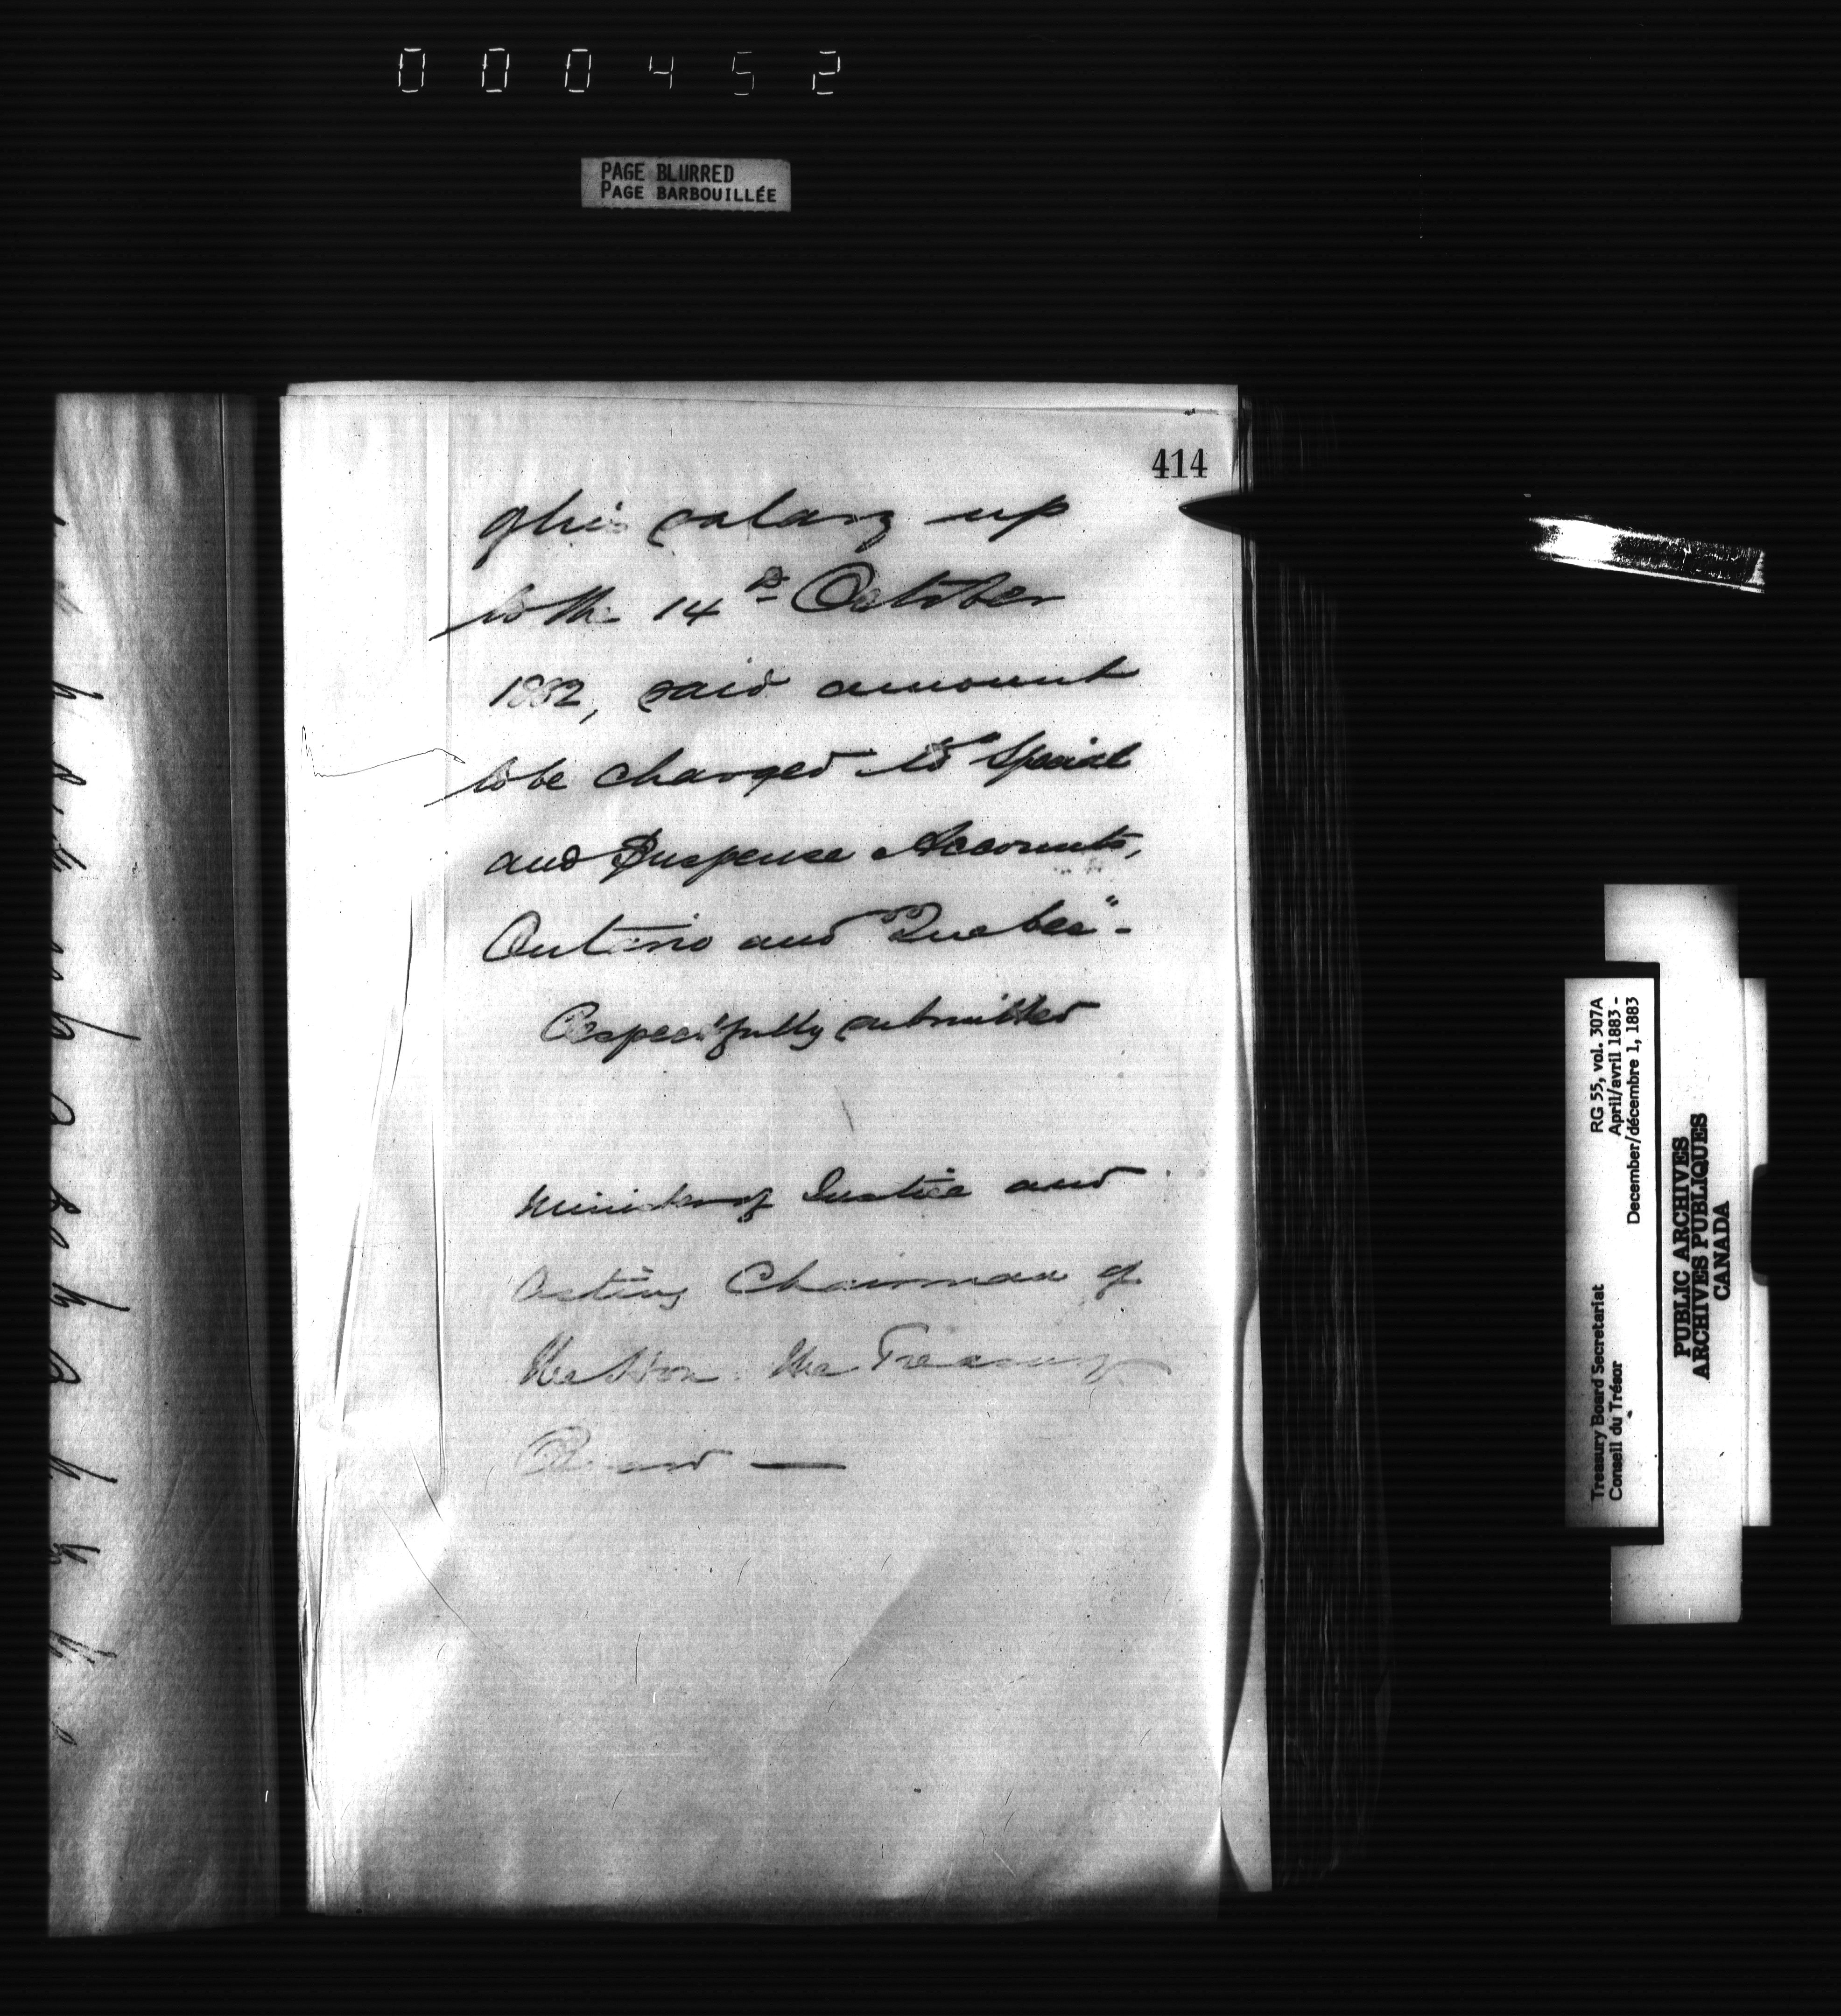 000452
PAGE BLURRED
PAGE BARBOUILLÉE
414
of his salary up
to the 14th October
1882, said amount
to be charged to "Special
and Suspense Accounts,
Ontario and Quebec" -
Respectfully submitted
Minister of Justice and
Acting Chairman of
the Hon. the Treasury
Board —
Treasury Board Secretariat RG 55, vol. 307A
Conseil du Trésor April/avril 1883 -
December/décembre 1, 1883
PUBLIC ARCHIVES
ARCHIVES PUBLIQUES
CANADA